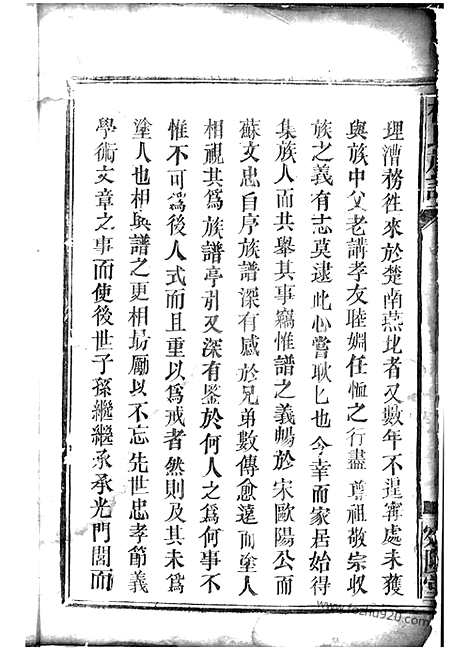 理漕務徃來於楚南燕北者又數年不遑寧處未獲
與族中父老講孝友睦婣任恤之行盡尊祖敬宗收
族之義有志莫逮此心嘗耿匕也今幸而家居始得
集族人而共舉其事竊惟譜之義暢於宋歐陽公而
蘇文忠自序族譜深有感於兄弟數傳愈遠而塗人
相視其爲族譜亭引又深有鑒於何人之爲何事不
惟不可爲後人式而且重以爲戒者然則及其未爲
塗人也相與譜之更相勗勵以不忘先世忠孝節義
學術文章之事而使後世子孫繼繼承承光門閭而
www.fozhu920.com